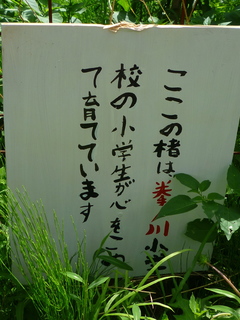 ここの楮は、拳ノ川小学
校の小学生が心をこめ
て育てています